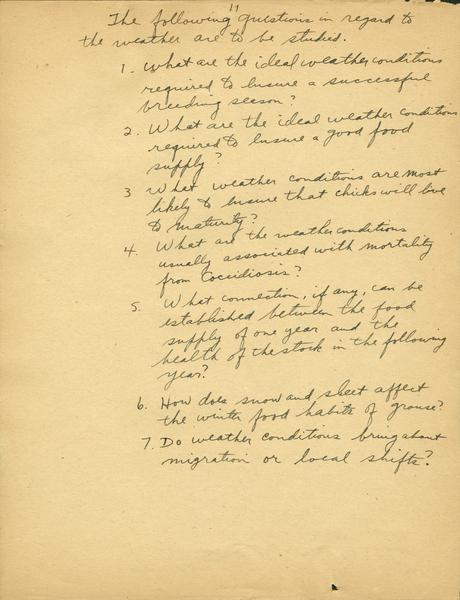 11
The following questions in regard to
the weather are to be studied.
1. What are the ideal weather conditions
required to insure a successful
breeding season?
2. What are the ideal weather conditions
required to insure a good food
supply?
3 What weather conditions are most
likely to insure that chicks will live
to maturity?
4. What are the weather conditions
usually associated with mortality
from Coccidiosis?
5. What connection, if any, can be
established between the food
supply of one year and the
health of the stock in the following
year?
6. How does snow and sleet affect
the winter food habits of grouse?
7. Do weather conditions bring about
migration or local shifts?